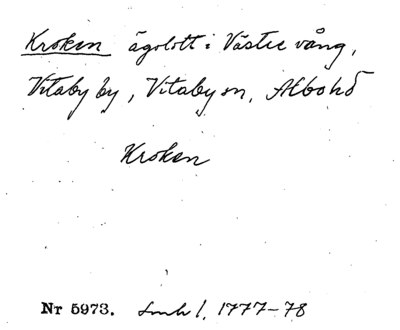 Kroken ägolott i Västre vång,
Vitaby by, Vitaby sn, Albo hd
Kroken
Nr 5973. Lmk 1, 1777-78